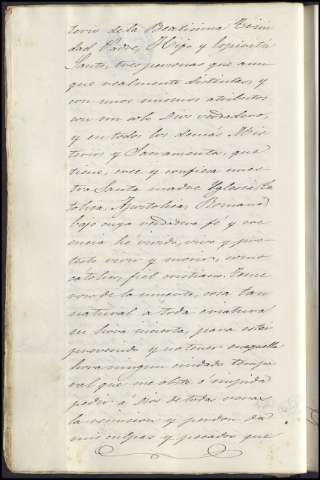 terio de la Beatisima Trini
dad Padre, Hijo y Espiritu
Santo, tres personas que aun
que realmente distintas, y
con unos mismos atributos
son un solo Dios verdadero,
y en todos los demas Mis
terios y Sacramentos, que
tiene, cree y confiesa nues-
tra Santa madre Yglesia, Ca
tolica, Apostolica, Romana
bajo cuya verdadera fé y cre
encia hé vivido, vivo y pro-
testo vivir y morir, como
catolico, fiel cristiano. Teme
roso de la muerte, cosa tan
natural á toda criatura
su hora incierta, para estar
prevenido y no tener en aquella
hora ningun cuidado tempo
ral que me obste ó impida
pedir á Dios de todas veras
la remision y perdon de
mis culpas y pecados que